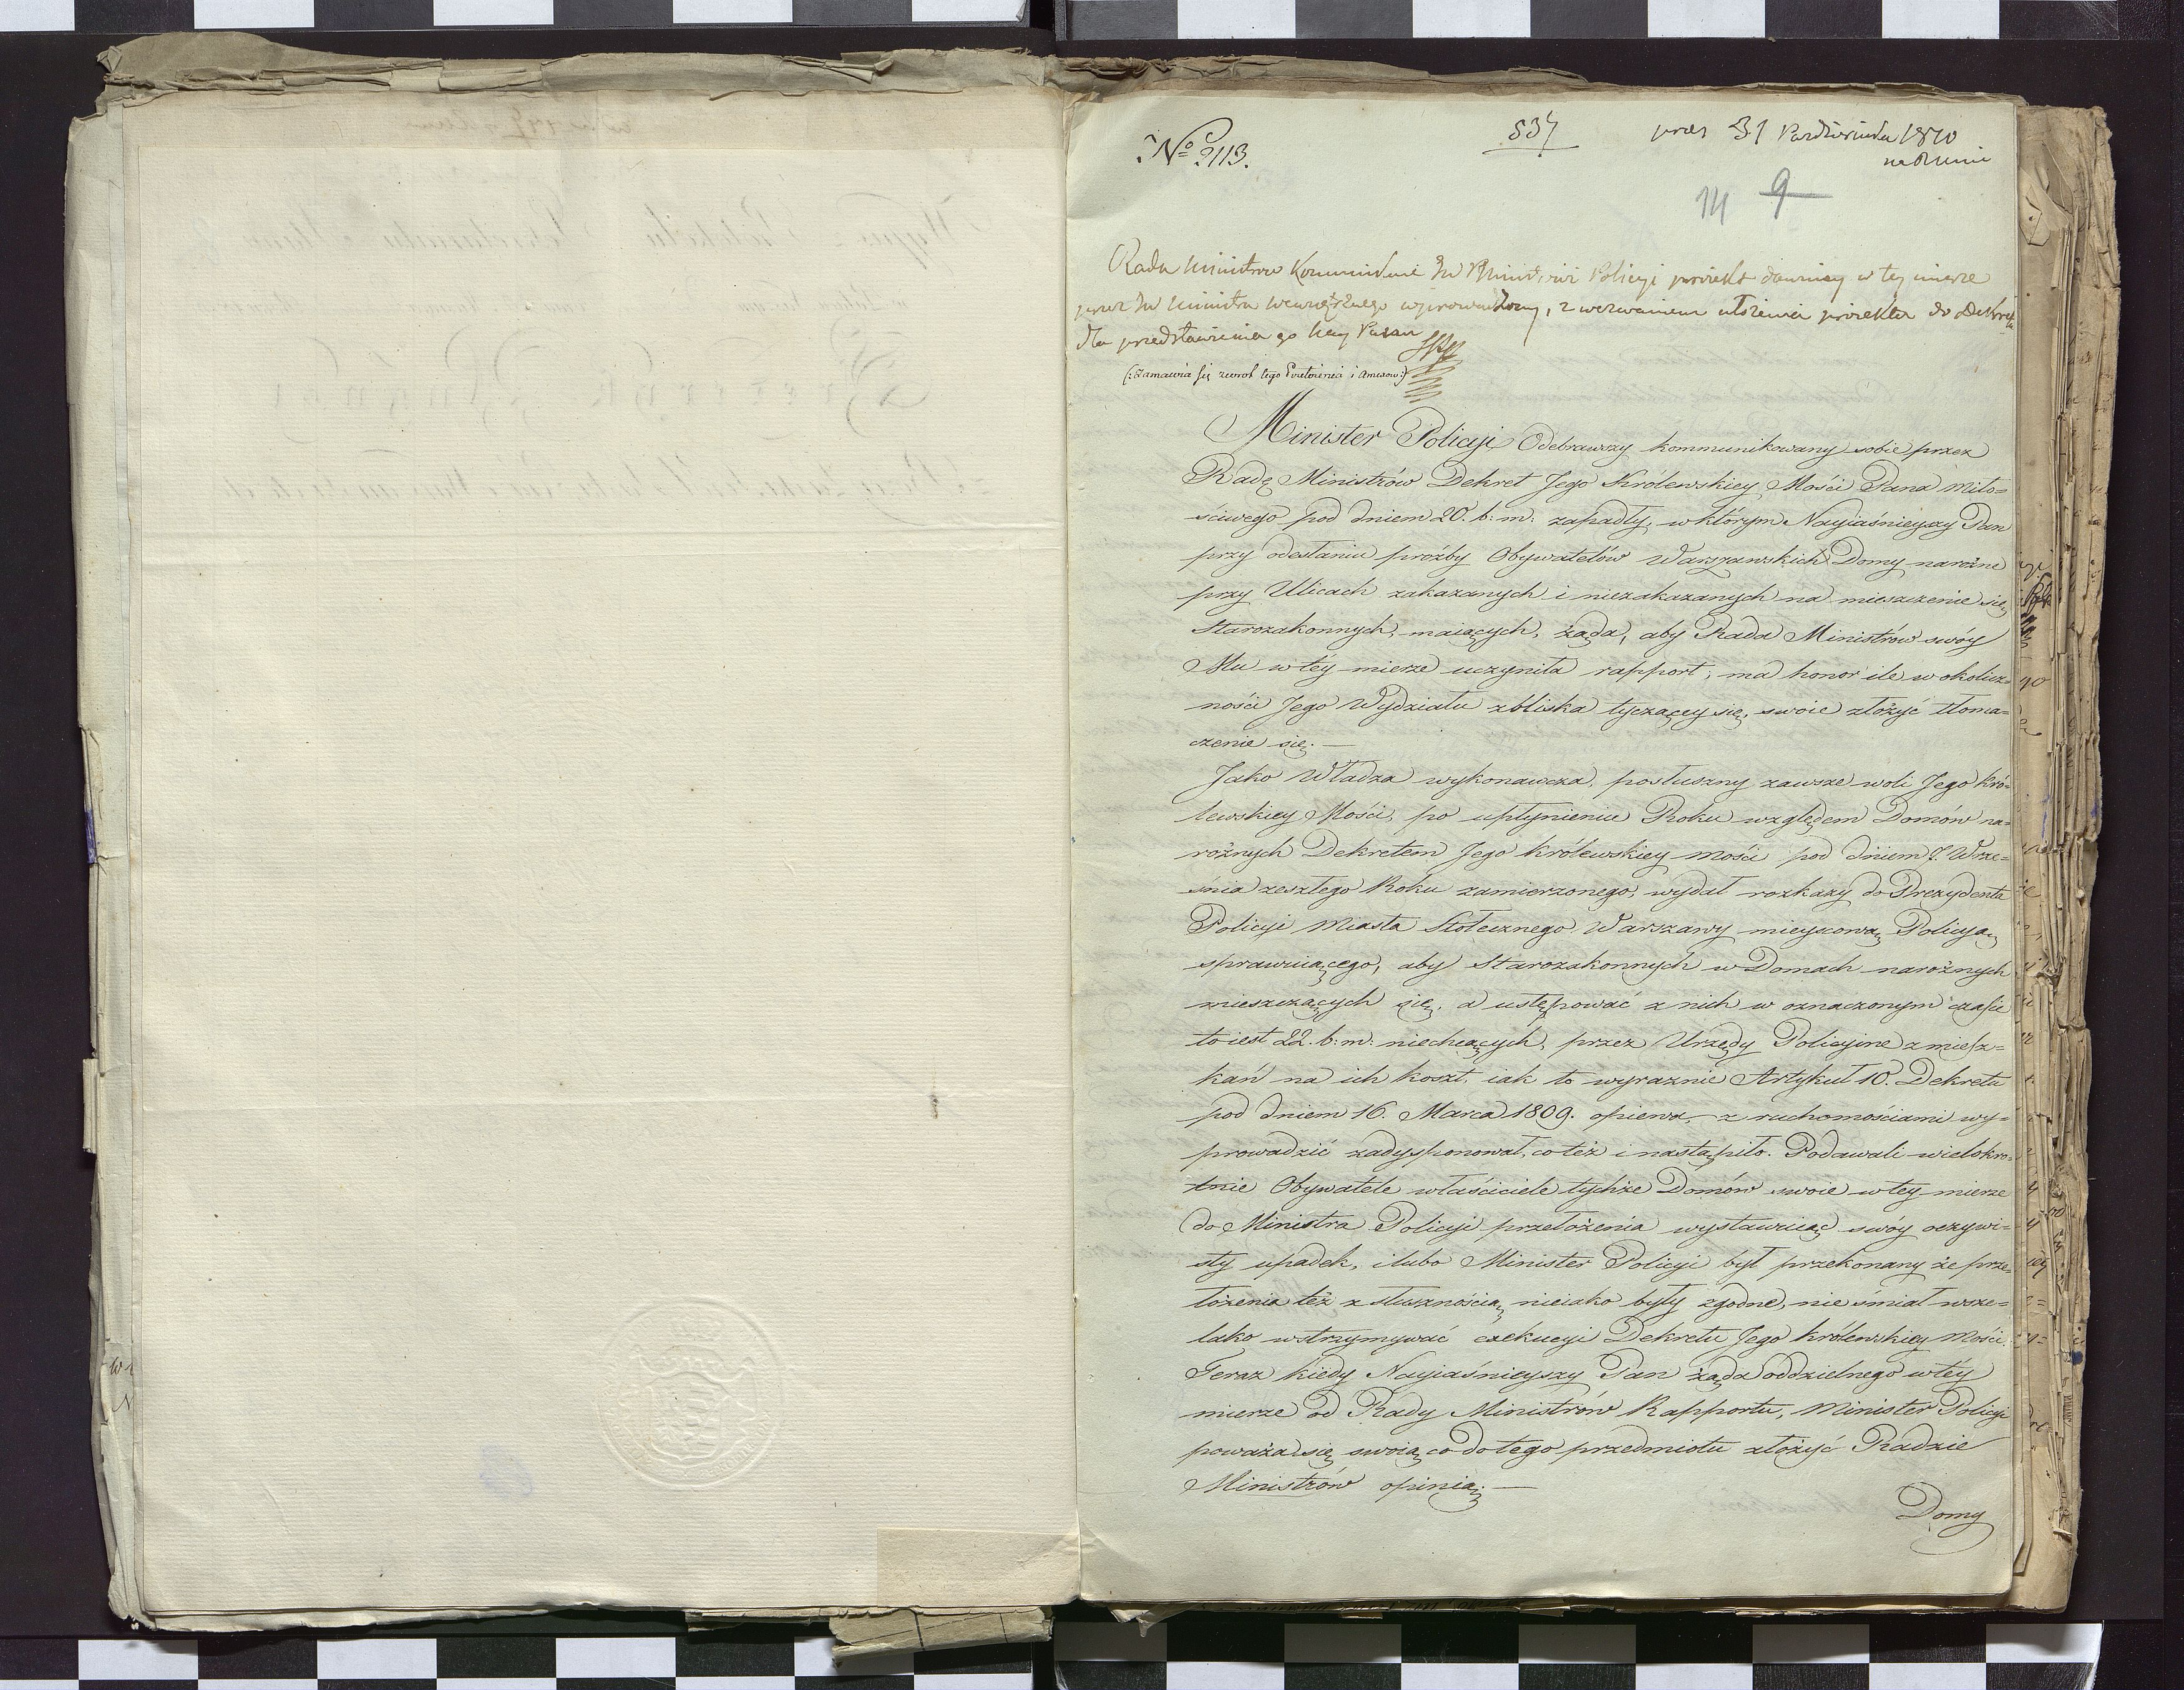 № 2113.
537
pres 31 Października 1810
14 9
Rada Ministrow Kommunikuie JW Ministrowi Policyi proiekt dawniey w tey mierze
przez JW Ministra Wewnętrznego wyprowadzony, z wezwaniem ułożenia proiektu do Dekretu
dla przedstawienia go Nay Panu
(:Zamawia się zwrot tego Przełożenia i Annexow:)
Minister Policyi Odebrawszy kommunikowany sobie przez
Radę Ministrów Dekret Jego Królewskiey Mości Pana Miło=
sciwego pod dniem 20. b: m: zapadły, w którym Nayiaśnieyszy Pan
przy odesłaniu proźby Obywatelów Warszawskich Domy narożne
przy Ulicach zakazanych i niezakazanych na mieszczenie się
Starozakonnych, maiących, żąda, aby Rada Ministrów swóy
Mu w téy mierze uczyniła rapport, ma honor ile w okolicz=
ności Jego Wydziału zbliska tyczącey się, swoie złożyć tłoma=
czenie się. —
Jako Władza wykonawcza, posłuszny zawsze woli Jego Kró=
lewskiey Mości, po upłynieniu Roku względem Domów na=
rożnych Dekretem Jego Królewskiey Mości pod dniem 7. Wrze=
śnia zeszłego Roku zamierzonego, wydał rozkazy do Prezydenta
Policyi Miasta Stołecznego Warszawy mieyscową Policyą
sprawuiącego, aby Starozakonnych w Domach narożnych
mieszczących się, a ustępować z nich w oznaczonym czasie
to iest 22. b: m: niechcących, przez Urzędy Policyine z miesz=
kań na ich koszt, iak to wyraznie Artykuł 10. Dekretu
pod dniem 16. Marca 1809. opiewa, z ruchomościami wy=
prowadzić zadysponował, co też i nastąpiło. Podawali wielokro=
tnie Obywatele właściciele tychże Domów swoie w tey mierze
do Ministra Policyi przełożenia wystawuiąc swóy oczywi=
sty upadek, i lubo Minister Policyi był przekonany że prze=
łożenia też z słusznością nieiako były zgodne, nie śmiał wsze=
lako wstrzymywać exekucyi Dekretu Jego Królewskiey Mości.
Teraz kiedy Nayiaśnieyszy Pan żąda oddzielnego w téy
mierze od Rady Ministrów Rapportu, Minister Policyi
poważa się swoią co do tego przedmiotu złożyć Radzie
Ministrów opinią. —
Domy